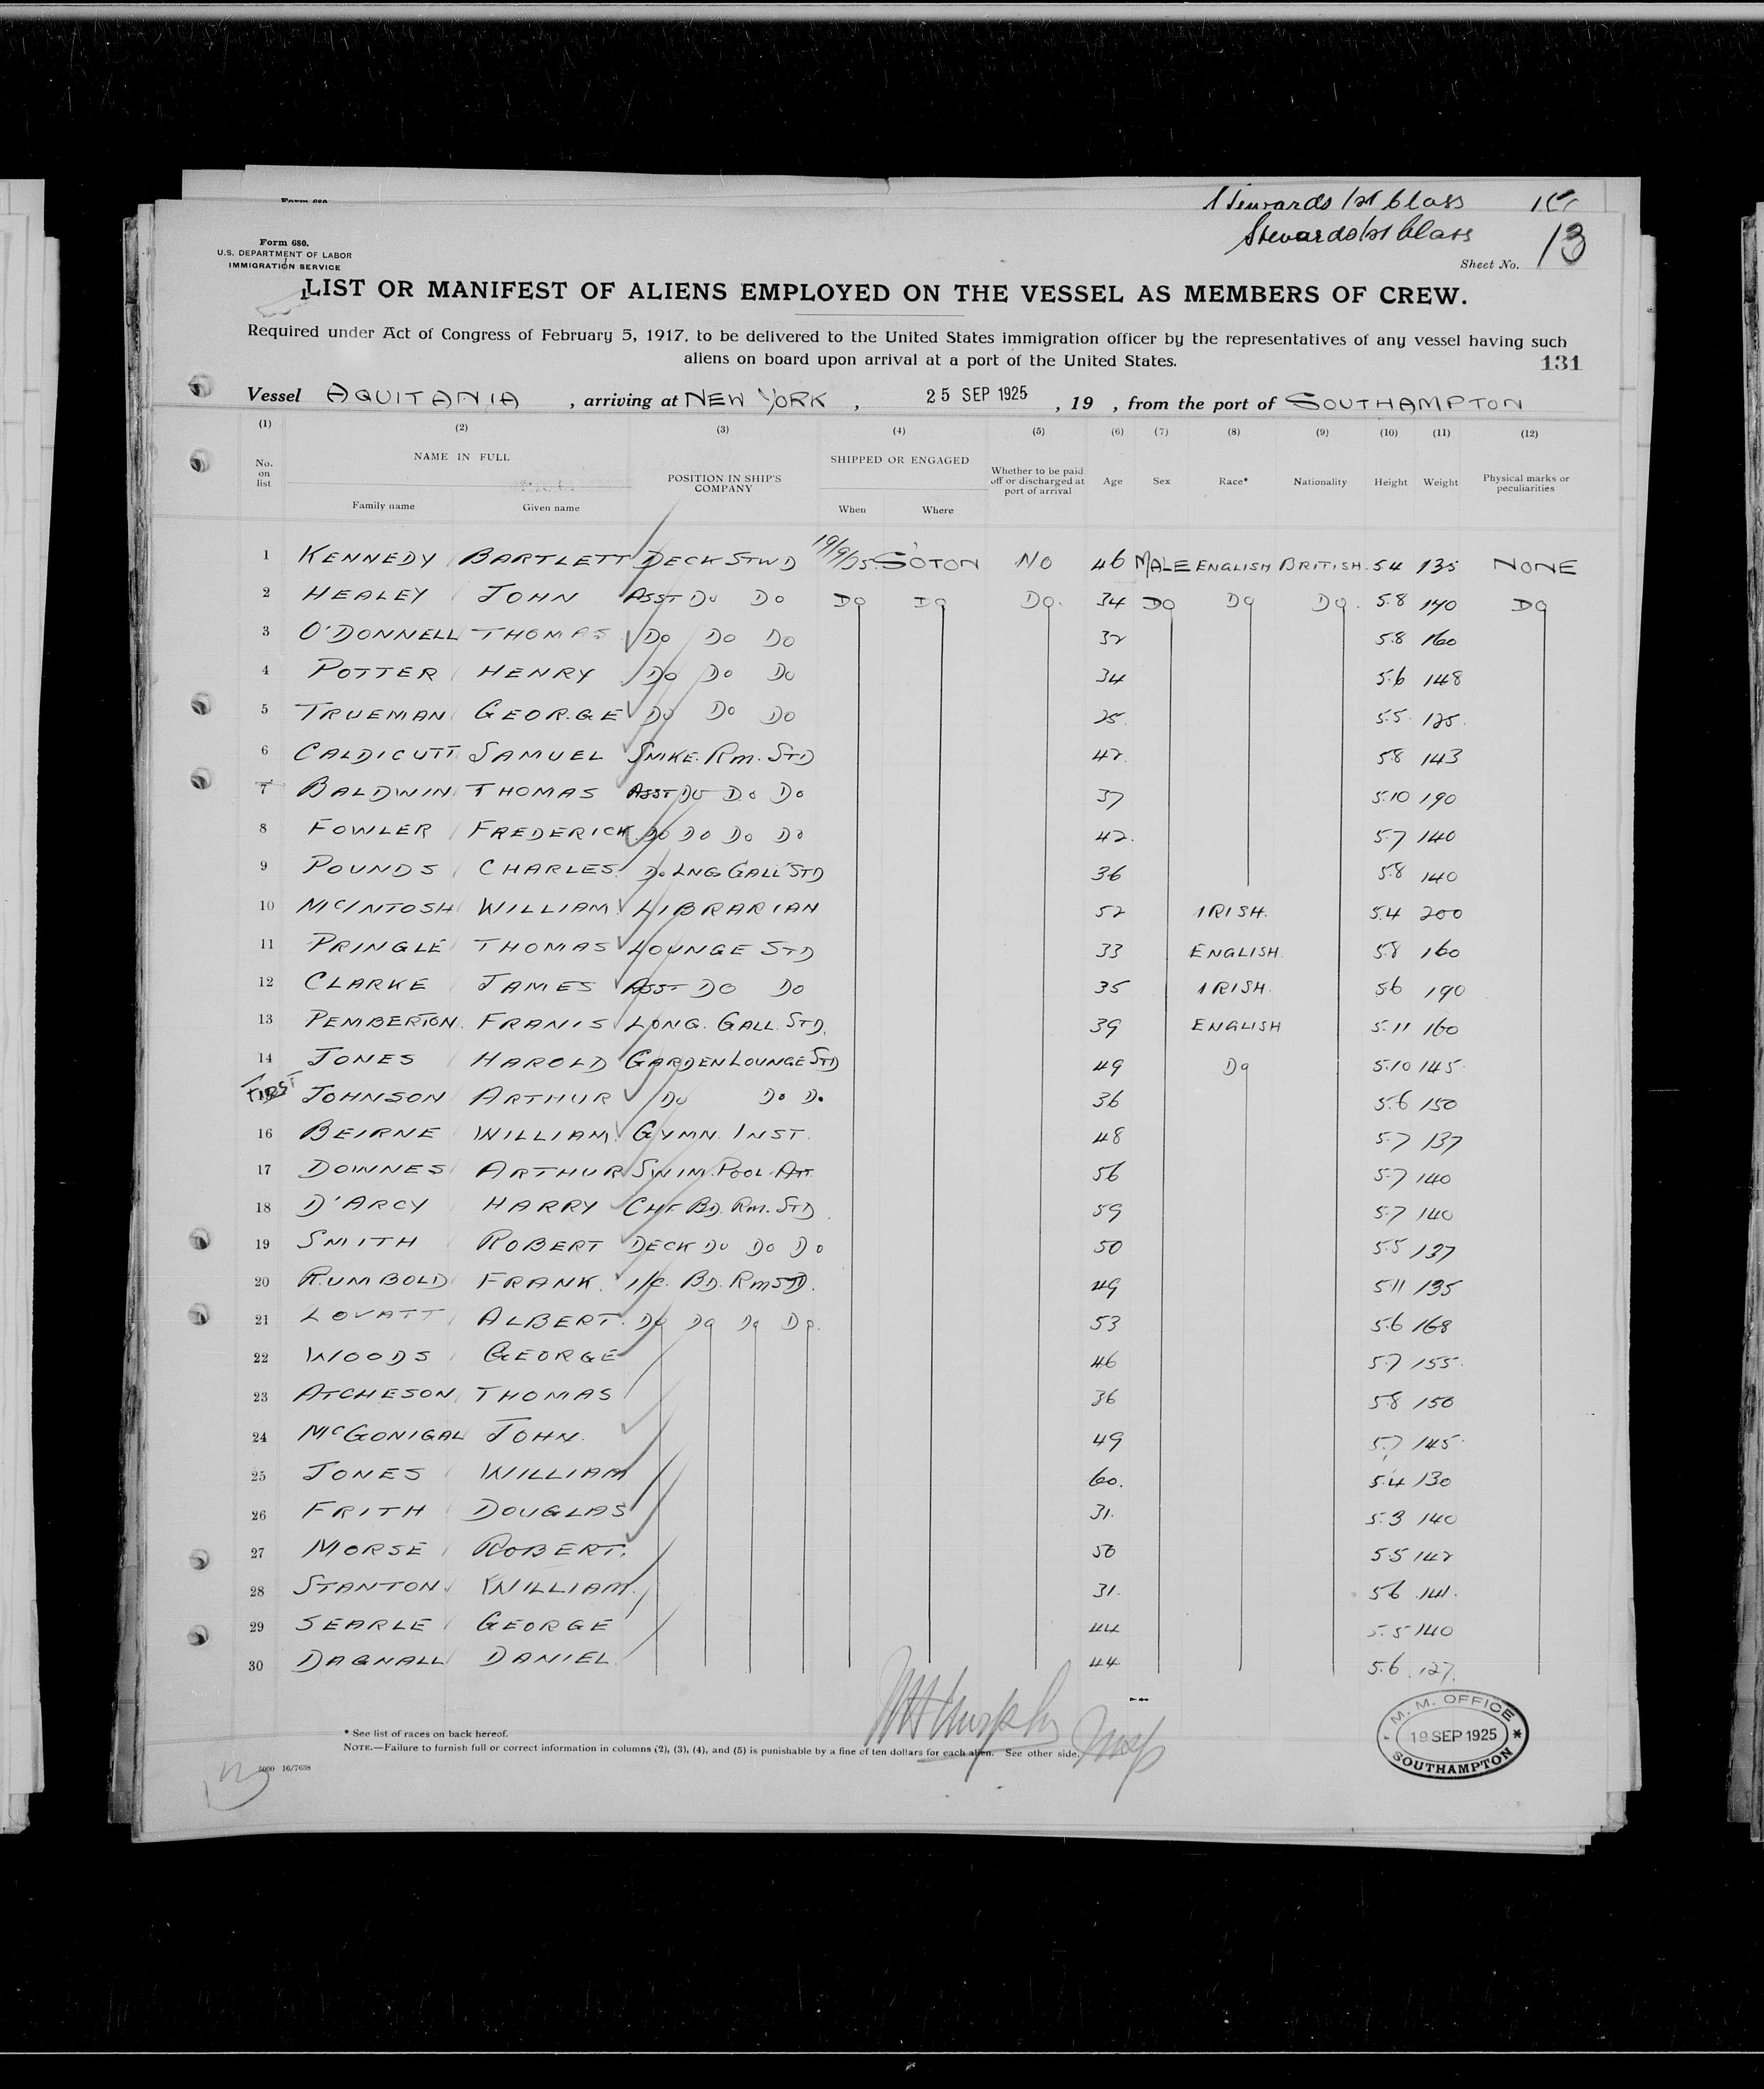 Stewards 1st Class
Stewards 1st Class 13
Form 680.
U.S. DEPARTMENT OF LABOR
IMMIGRATION SERVICE
Sheet No.
LIST OR MANIFEST OF ALIENS EMPLOYED ON THE VESSEL AS MEMBERS OF CREW.
Required under Act of Congress of February 5, 1917, to be delivered to the United States immigration officer by the representatives of any vessel having such
aliens on board upon arrival at a port of the United States.
131
Vessel AQUITANIA, arriving at NEW YORK, 25 SEP 1925, 19 , from the port of SOUTHAMPTON
(1) (2) (3) (4) (5) (6) (7) (8) (9) (10) (11) (12)
No. on list NAME IN FULL Family name Given name POSITION IN SHIP'S COMPANY SHIPPED OR ENGAGED When Where Whether to be paid off or discharged at port of arrival Age Sex Race* Nationality Height Weight Physical marks or peculiarities
1 KENNEDY BARTLETT DECK STWD 19/9/25 S'OTON NO 46 MALE ENGLISH BRITISH 5.4 135 NONE
2 HEALEY JOHN ASST DO DO DO DO DO. 34 DO DO DO. 5.8 140 DO
3 O'DONNELL THOMAS DO DO DO 32 5.8 160
4 POTTER HENRY DO DO DO 34 5.6 148
5 TRUEMAN GEORGE DO DO DO 25. 5.5 125.
6 CALDICUTT SAMUEL SMKE. RM. STD 42. 5.8 143
7 BALDWIN THOMAS ASST DO DO DO 37 5.10 190
8 FOWLER FREDERICK DO DO DO DO 42. 5.7 140
9 POUNDS CHARLES. DO LNG GALL STD 36 5.8 140
10 McINTOSH WILLIAM LIBRARIAN 52 IRISH. 5.4 200
11 PRINGLE THOMAS LOUNGE STD 33 ENGLISH. 5.8 160
12 CLARKE JAMES ASST DO DO 35 IRISH. 5.6 190
13 PEMBERTON. FRANIS LONG. GALL. STD. 39 ENGLISH 5.11 160
14 JONES HAROLD GARDEN LOUNGE STD 49 DO 5.10 145
FIRST JOHNSON ARTHUR DO DO DO 36 5.6 150
16 BEIRNE WILLIAM. GYMN. INST. 48 5.7 137
17 DOWNES ARTHUR SWIM. POOL. ATT. 56 5.7 140
18 D'ARCY HARRY CHF BD. RM. STD. 59 5.7 140
19 SMITH ROBERT DECK DO DO DO 50 5.5 137
20 RUMBOLD FRANK. 1/C. BD. RM STD. 49 5.11 135
21 LOVATT ALBERT. DO DO DO DO. 53 5.6 168
22 WOODS GEORGE 46 5.7 155.
23 ATCHESON THOMAS 36 5.8 150
24 McGONIGAL JOHN. 49 5.7 145
25 JONES WILLIAM 60. 5.4 130
26 FRITH DOUGLAS 31. 5.3 140
27 MORSE ROBERT. 50 5.5 142
28 STANTON WILLIAM. 31. 5.6 141.
29 SEARLE GEORGE 44 5.5 140
30 DAGNALL DANIEL. 44 5.6 127.
* See list of races on back hereof.
NOTE.—Failure to furnish full or correct information in columns (2), (3), (4), and (5) is punishable by a fine of ten dollars for each alien. See other side.
5000 16/7638
M. M. OFFICE
19 SEP 1925
SOUTHAMPTON